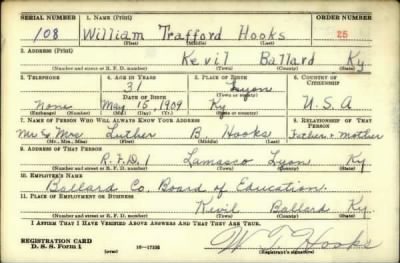 SERIAL NUMBER 1. NAME (Print) ORDER NUMBER
108 William Trafford Hooks 25
(First) (Middle) (Last)
2. ADDRESS (Print)
Kevil Ballard Ky
(Number and street or R. F. D. number) (Town) (County) (State)
3. TELEPHONE 4. AGE IN YEARS 5. PLACE OF BIRTH 6. COUNTRY OF CITIZENSHIP
31 Lyon
DATE OF BIRTH (Town or county)
None May 15, 1909 Ky U.S.A
(Exchange) (Number) (Mo.) (Day) (Yr.) (State or country)
7. NAME OF PERSON WHO WILL ALWAYS KNOW YOUR ADDRESS 8. RELATIONSHIP OF THAT PERSON
Mr & Mrs Luther B. Hooks Father & mother
(Mr., Mrs., Miss) (First) (Middle) (Last)
9. ADDRESS OF THAT PERSON
R.F.D. 1 Lamasco Lyon Ky
(Number and street or R. F. D. number) (Town) (County) (State)
10. EMPLOYER'S NAME
Ballard Co. Board of Education.
11. PLACE OF EMPLOYMENT OR BUSINESS
Kevil Ballard Ky.
(Number and street or R. F. D. number) (Town) (County) (State)
I AFFIRM THAT I HAVE VERIFIED ABOVE ANSWERS AND THAT THEY ARE TRUE.
REGISTRATION CARD
D. S. S. Form 1 (over) 16-17105 W T Hooks
(Registrant's signature)